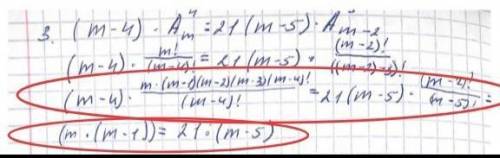 3. (m-4) · A⁴ₘ = 21(m-5) · A³ₘ₋₂
(m-4) · m!/(m-4)! = 21(m-5) · (m-2)!/((m-2)-3)!
(m-4) · m·(m-1)(m-2)(m-3)(m-4)!/(m-4)! = 21(m-5) · (m-4)!/(m-5)! =
(m·(m-1)) = 21·(m-5)